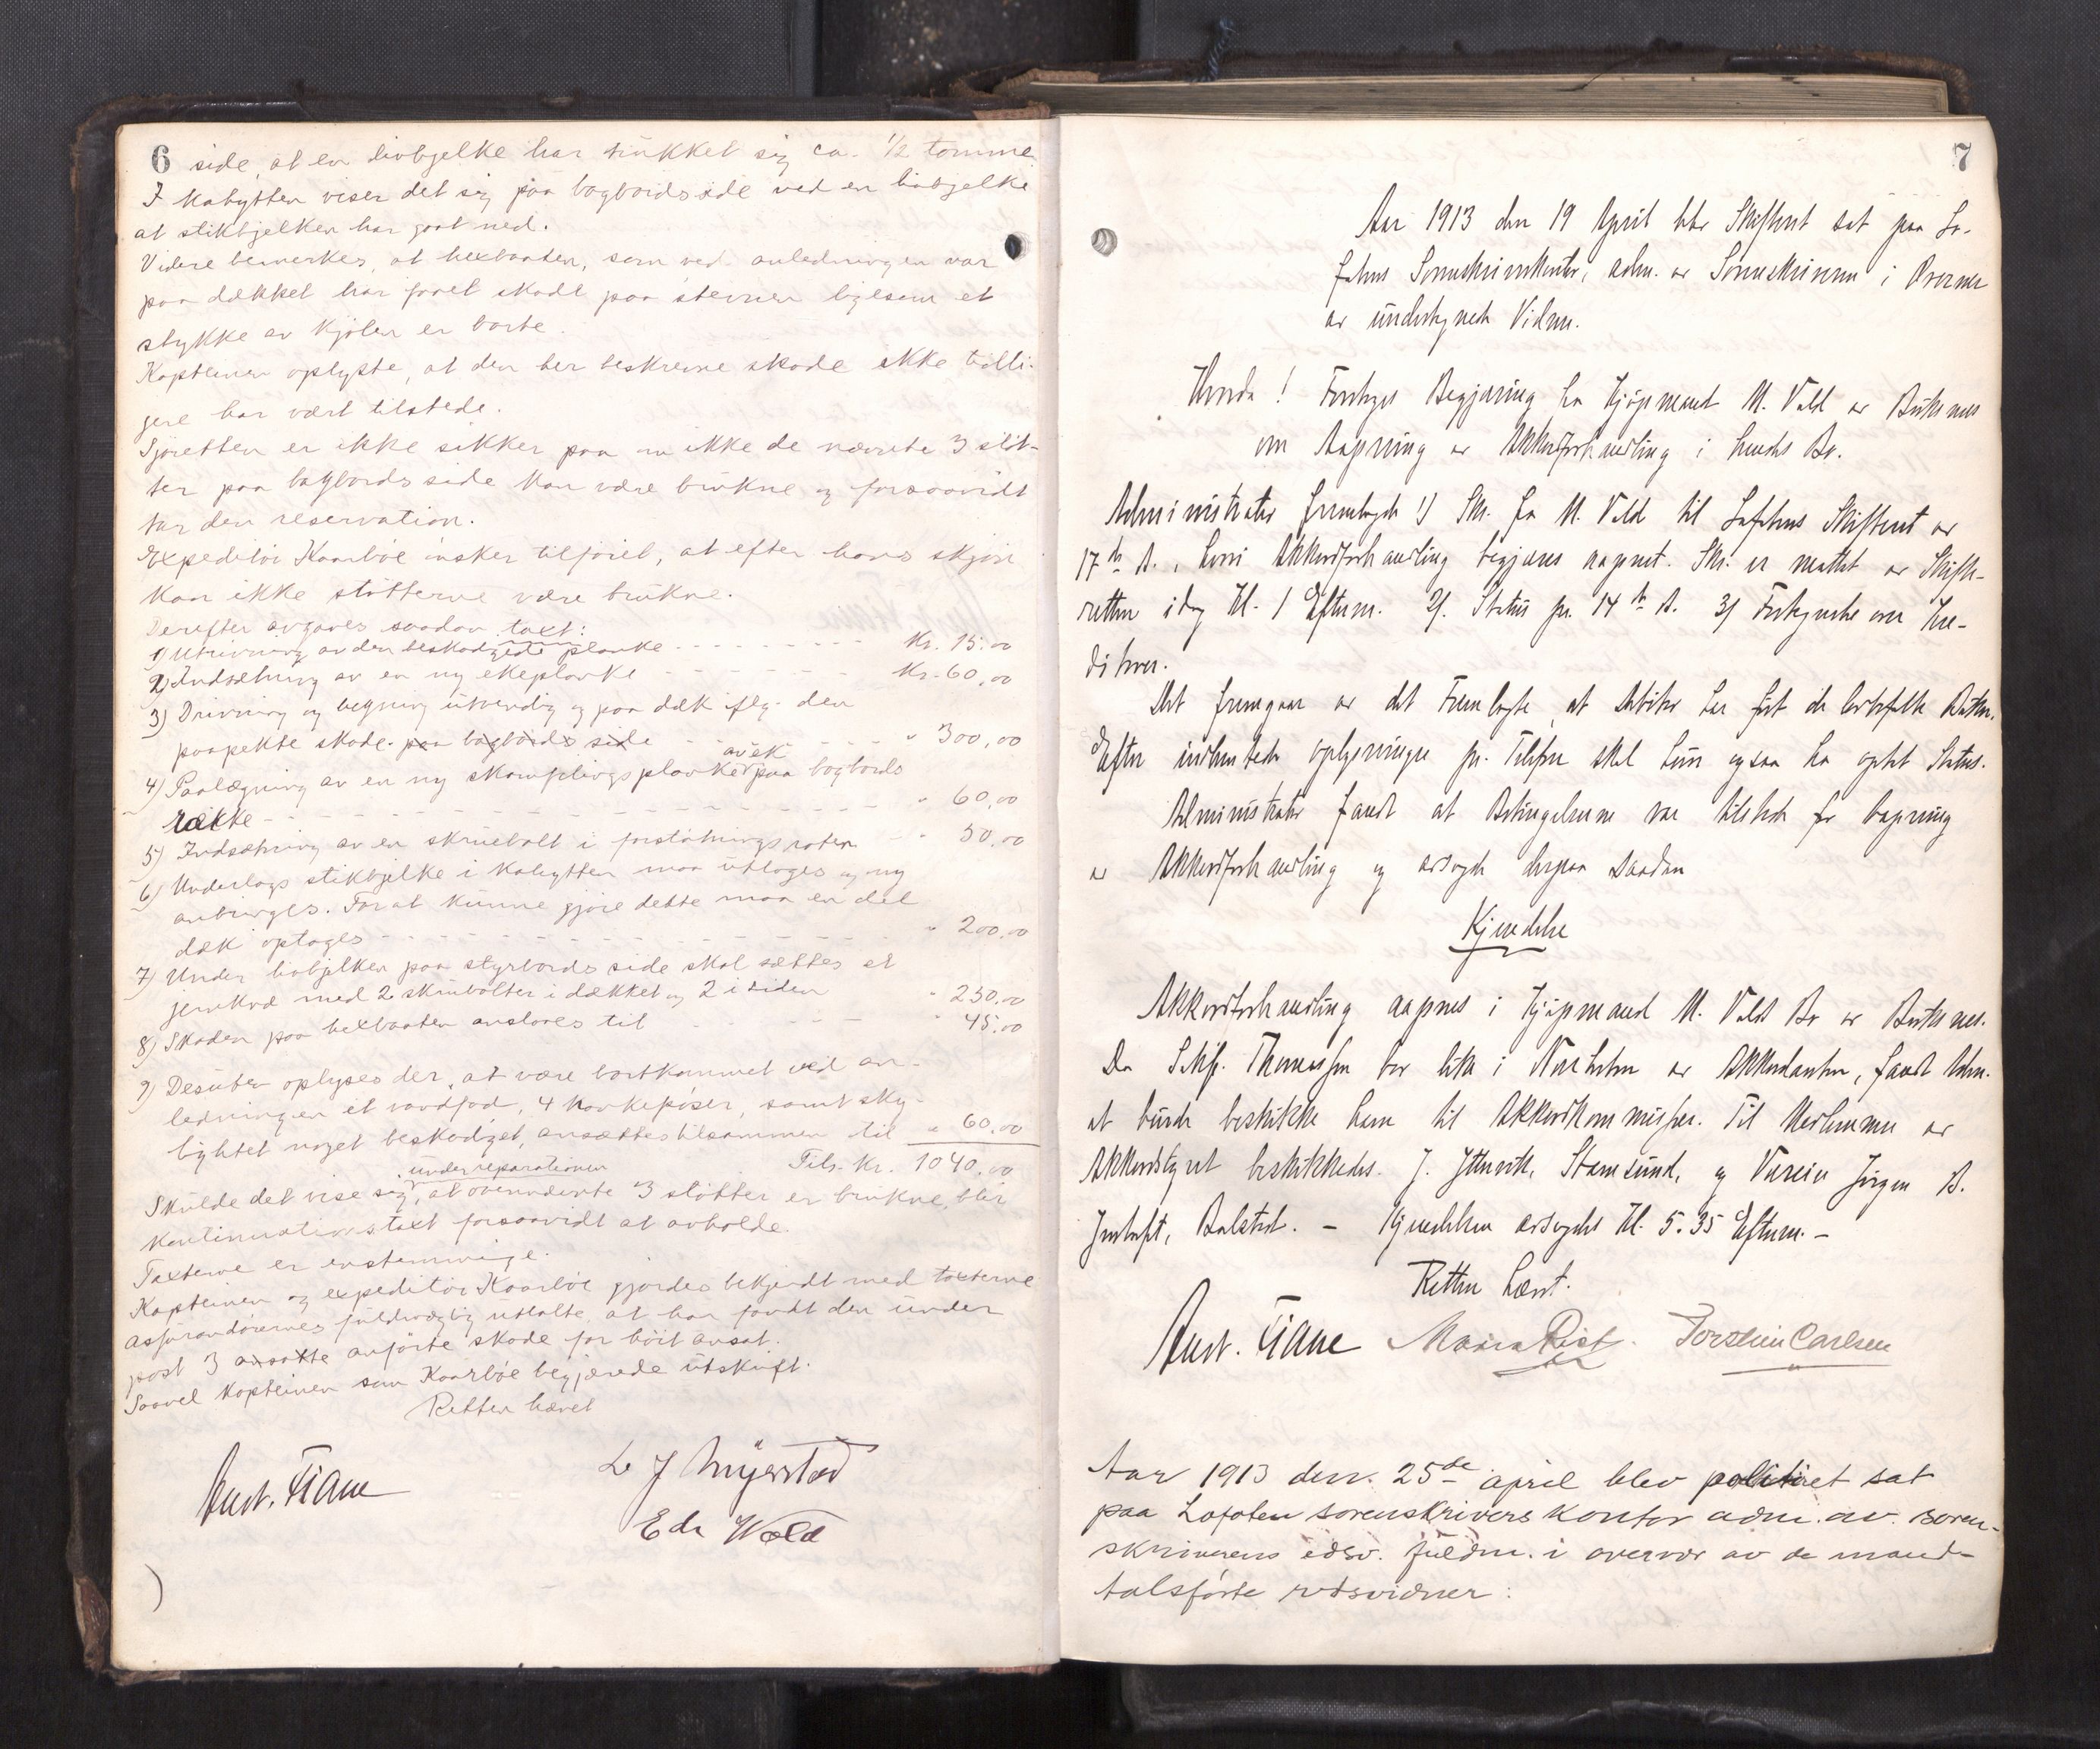 6 side, at en livbjelke har trukket sig ca. 1/2 tomme
I kahytten viser det sig paa bagbords side ved en livbjelke
at stikbjelken har gaat ned.
Videre bemerkes, at hexbaaten, som ved anledningen var
paa dækket har faaet skade paa stevnen ligesom et
stykke av kjølen er borte.
Kapteinen oplyste, at den her beskrevne skade ikke tidli-
gere har vært tilstede.
Sjøretten er ikke sikker paa om ikke de nævnte 3 støt-
ter paa bagbords side kan være brukne og forsaavidt
tar den reservation.
Expeditør Kaarbøe ønsker tilføiet, at efter hans skjøn
kan ikke støtterne være brukne.
Derefter avgaves saadan taxt:
1) Utrivning av den beskadigede planke Kr. 15.00
2) Indsætning av en ny ekeplanke Kr. 60,00
3) Drivning og begning utvendig og paa dæk iflg. den
paapekte skade paa bagbords side " 300,00
4) Paalægning av en ny skamplings planke av ek paa bagbords
række " 60,00
5) Indsætning av en skruebolt i forstøtnings " 50.00
6) Underlags stikbjelke i kahytten maa uttages og ny
anbringes. For at kunne gjøre dette maa en del
dæk optages " 200.00
7) Under livbjelken paa styrbords side skal sættes et
jernknæ med 2 skrubolter i dækket og 2 i siden " 250.00
8) Skaden paa hexbaaten ansloges til " 45.00
9) Desuten oplyses der, at være bortkommet ved an-
ledningen et vandfad, 4 korkepøser, samt sky-
lightet noget beskadiget, ansættes tilsammen til " 60.00
Tils. Kr. 1040,00
Skulde det vise sig, under reparationen at ovennævnte 3 støtter er brukne, blir
kontinuationstaxt forsaavidt at avholde.
Taxterne er enstemmige.
Kapteinen og expeditør Kaarbøe gjordes bekjendt med taxterne
assurandørernes fuldmægtig uttalte, at han fandt den under
post 3 ansatte anførte skade for høit ansat.
Saavel kapteinen som Kaarbøe begjærede utskrift.
Retten hævet
Aust. Fiane
Edv Wold
7
Aar 1913 den 19 April blev Skifteret sat paa Lo-
fotens Sorenskriverkontor, adm. av Sorenskriveren i Overvær
av undertegnede Vidner.
Hvorda! Foretoges Begjæring fra Kjøpmand M. Vold av Buksnes
om Aapning av Akkordforhandling i hendes Bo.
Administrator fremlagde 1) Skr. fra M. Vold til Lofotens Skifteret av
17 ds. D., hvori Akkordforhandling begjæres aapnet. Skr. er mottat av Skifte-
retten idag Kl. 1 Efterm. 2). Status pr. 14 ds. D. 3) Fortegnelse over Kre-
ditorer.
Det fremgaar av det Fremlagte, at Debitor har ført de lovbefalte Bøker.
Efter indhentede oplysninger pr. Telefon skal hun ogsaa ha optat Status.
Administrator fandt at Betingelserne var tilstede for Aapning
av Akkordforhandling og avsagde derpaa saadan
Kjendelse
Akkordforhandling aapnes i Kjøpmand M. Volds Bo av Buksnes.
Da Thomassen bor like i Nærheten av Akkordanten, fandt Adm.
at burde beskikke ham til Akkordkommissær. Til Medlemmer av
Akkordstyret beskikkedes J. Stamsund, og Jørgen B.
Balstad. – Kjendelsen avsagdes Kl. 5.35 Efterm. –
Retten hævet.
Aust. Fiane Maria Rist. Torstein Carlsen
Aar 1913 den 25de april blev politiret sat
paa Lofoten sorenskrivers kontor adm. av soren-
skriverens edsv. fuldm. i overvær av de mand-
talsførte retsvidner: